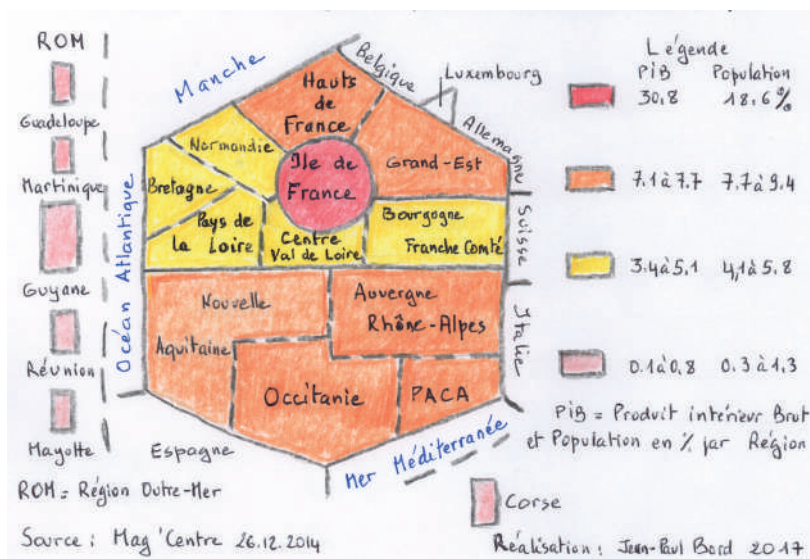 ROM
Guadeloupe
Martinique
Guyane
Réunion
Mayotte
ROM = Région Outre-Mer
Source : Mag'Centre 26.12.2014
Manche
Océan Atlantique
Belgique
Luxembourg
Allemagne
Suisse
Italie
Mer Méditerranée
Espagne
Hauts
de
France
Normandie
Ile de
France
Grand-Est
Bretagne
Pays de
la Loire
Centre
Val de Loire
Bourgogne
Franche Comté
Nouvelle
Aquitaine
Auvergne
Rhône-Alpes
Occitanie
PACA
Corse
Légende
PiB Population
30.8 18.6%
7.1 à 7.7 7.7 à 9.4
3.4 à 5.1 4,1 à 5.8
0.1 à 0,8 0.3 à 1.3
PiB = Produit intérieur Brut
et Population en % par Région
Réalisation : Jean-Paul Bord 2017